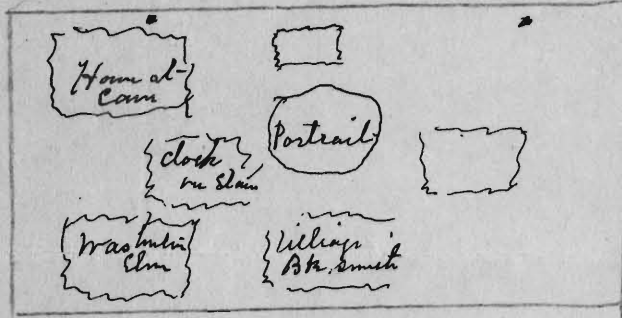 Home at
Cam
Portrait
Clock
on Stairs
Washntn
Elm
Village
Bk. Smith